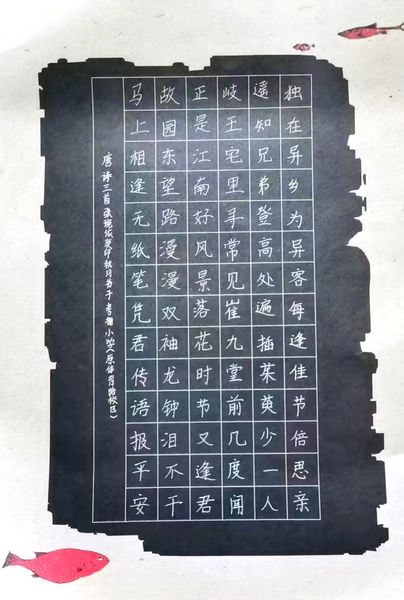 独在异乡为异客每逢佳节倍思亲
遥知兄弟登高处遍插茱萸少一人
岐王宅里寻常见崔九堂前几度闻
正是江南好风景落花时节又逢君
故园东望路漫漫双袖龙钟泪不干
马上相逢无纸笔凭君传语报平安
唐诗三首 癸卯秋月书于考棚小学（原体育路校区）